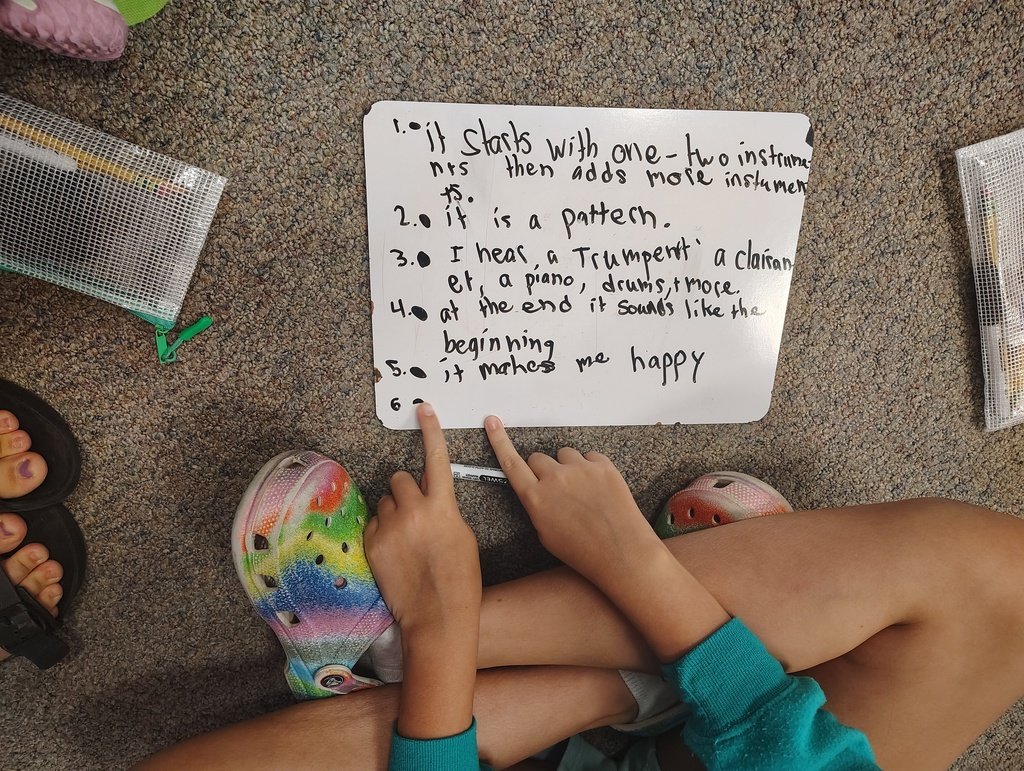 1.• it starts with one-two instrume
nts then adds more instumen
ts.
2.• it is a pattern.
3.• I hear a Trumpent a clairan
et, a piano, drums, + more.
4.• at the end it sounds like the
beginning
5.• it makes me happy
6 •